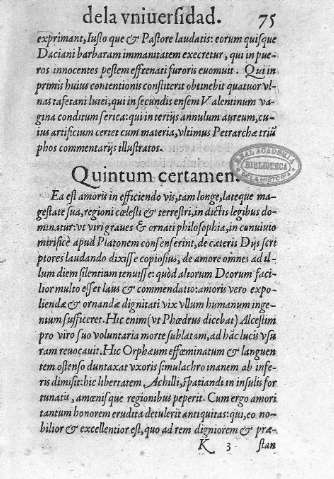 de la vniuersidad. 75
exprimant, Iusto que & Pastore laudatis: eorum quisque
Daciani barbaram immanitatem execretur, qui in pue-
ros innocentes pestem effrenati furoris euomuit. Qui in
primis huius contentionis constiterit obtinebit quatuor vl-
nas tafetani lutei, qui in secundis ensem Valentinum vagi-
na conditum serica: qui in tertijs annulum aureum, cu-
ius artificium certet cum materia, vltimus Petrarchæ triũ
phos commentarijs illustratos.
Quintum certamen.
Ea est amoris in efficiendo vis, tam longe, lateque ma-
gestate sua, regioni cœlesti & terrestri, in dictis legibus do-
minatur: vt viri graues & ornati philosophia, in conuiuio
mirificè apud Platonem consenserint, de cæteris Dijs scri-
ptores laudando dixisse copiosius, de amore omnes ad il-
lum diem silentium tenuisse: quòd aliorum Deorum faci-
lior multo esset laus & commendatio: amoris vero expo-
liendæ & ornandæ dignitati vix vllum humanum inge-
nium sufficeret. Hic enim (vt Phœdrus dicebat) Alcestim
pro viro suo voluntaria morte sublatam, ad hác lucis vsu
ram reuocauit. Hic Orphæum effœminatum & languen
tem ostenso duntaxat vxoris simulachro inanem ab infe-
ris dimisit: hic libertatem, Achilli, spatiandi in insulis for
tunatis, amœnisque regionibus peperit. Cum ergo amori
tantum honorem erudita detulerit antiquitas: qui, eo no-
bilior & excellentior est, quo ad rem digniorem & præ-
K 3 stan
REAL ACADEMIA
BIBLIOTECA